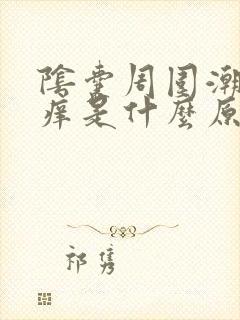 陰囊周围潮
痒是什麼原
祁隽